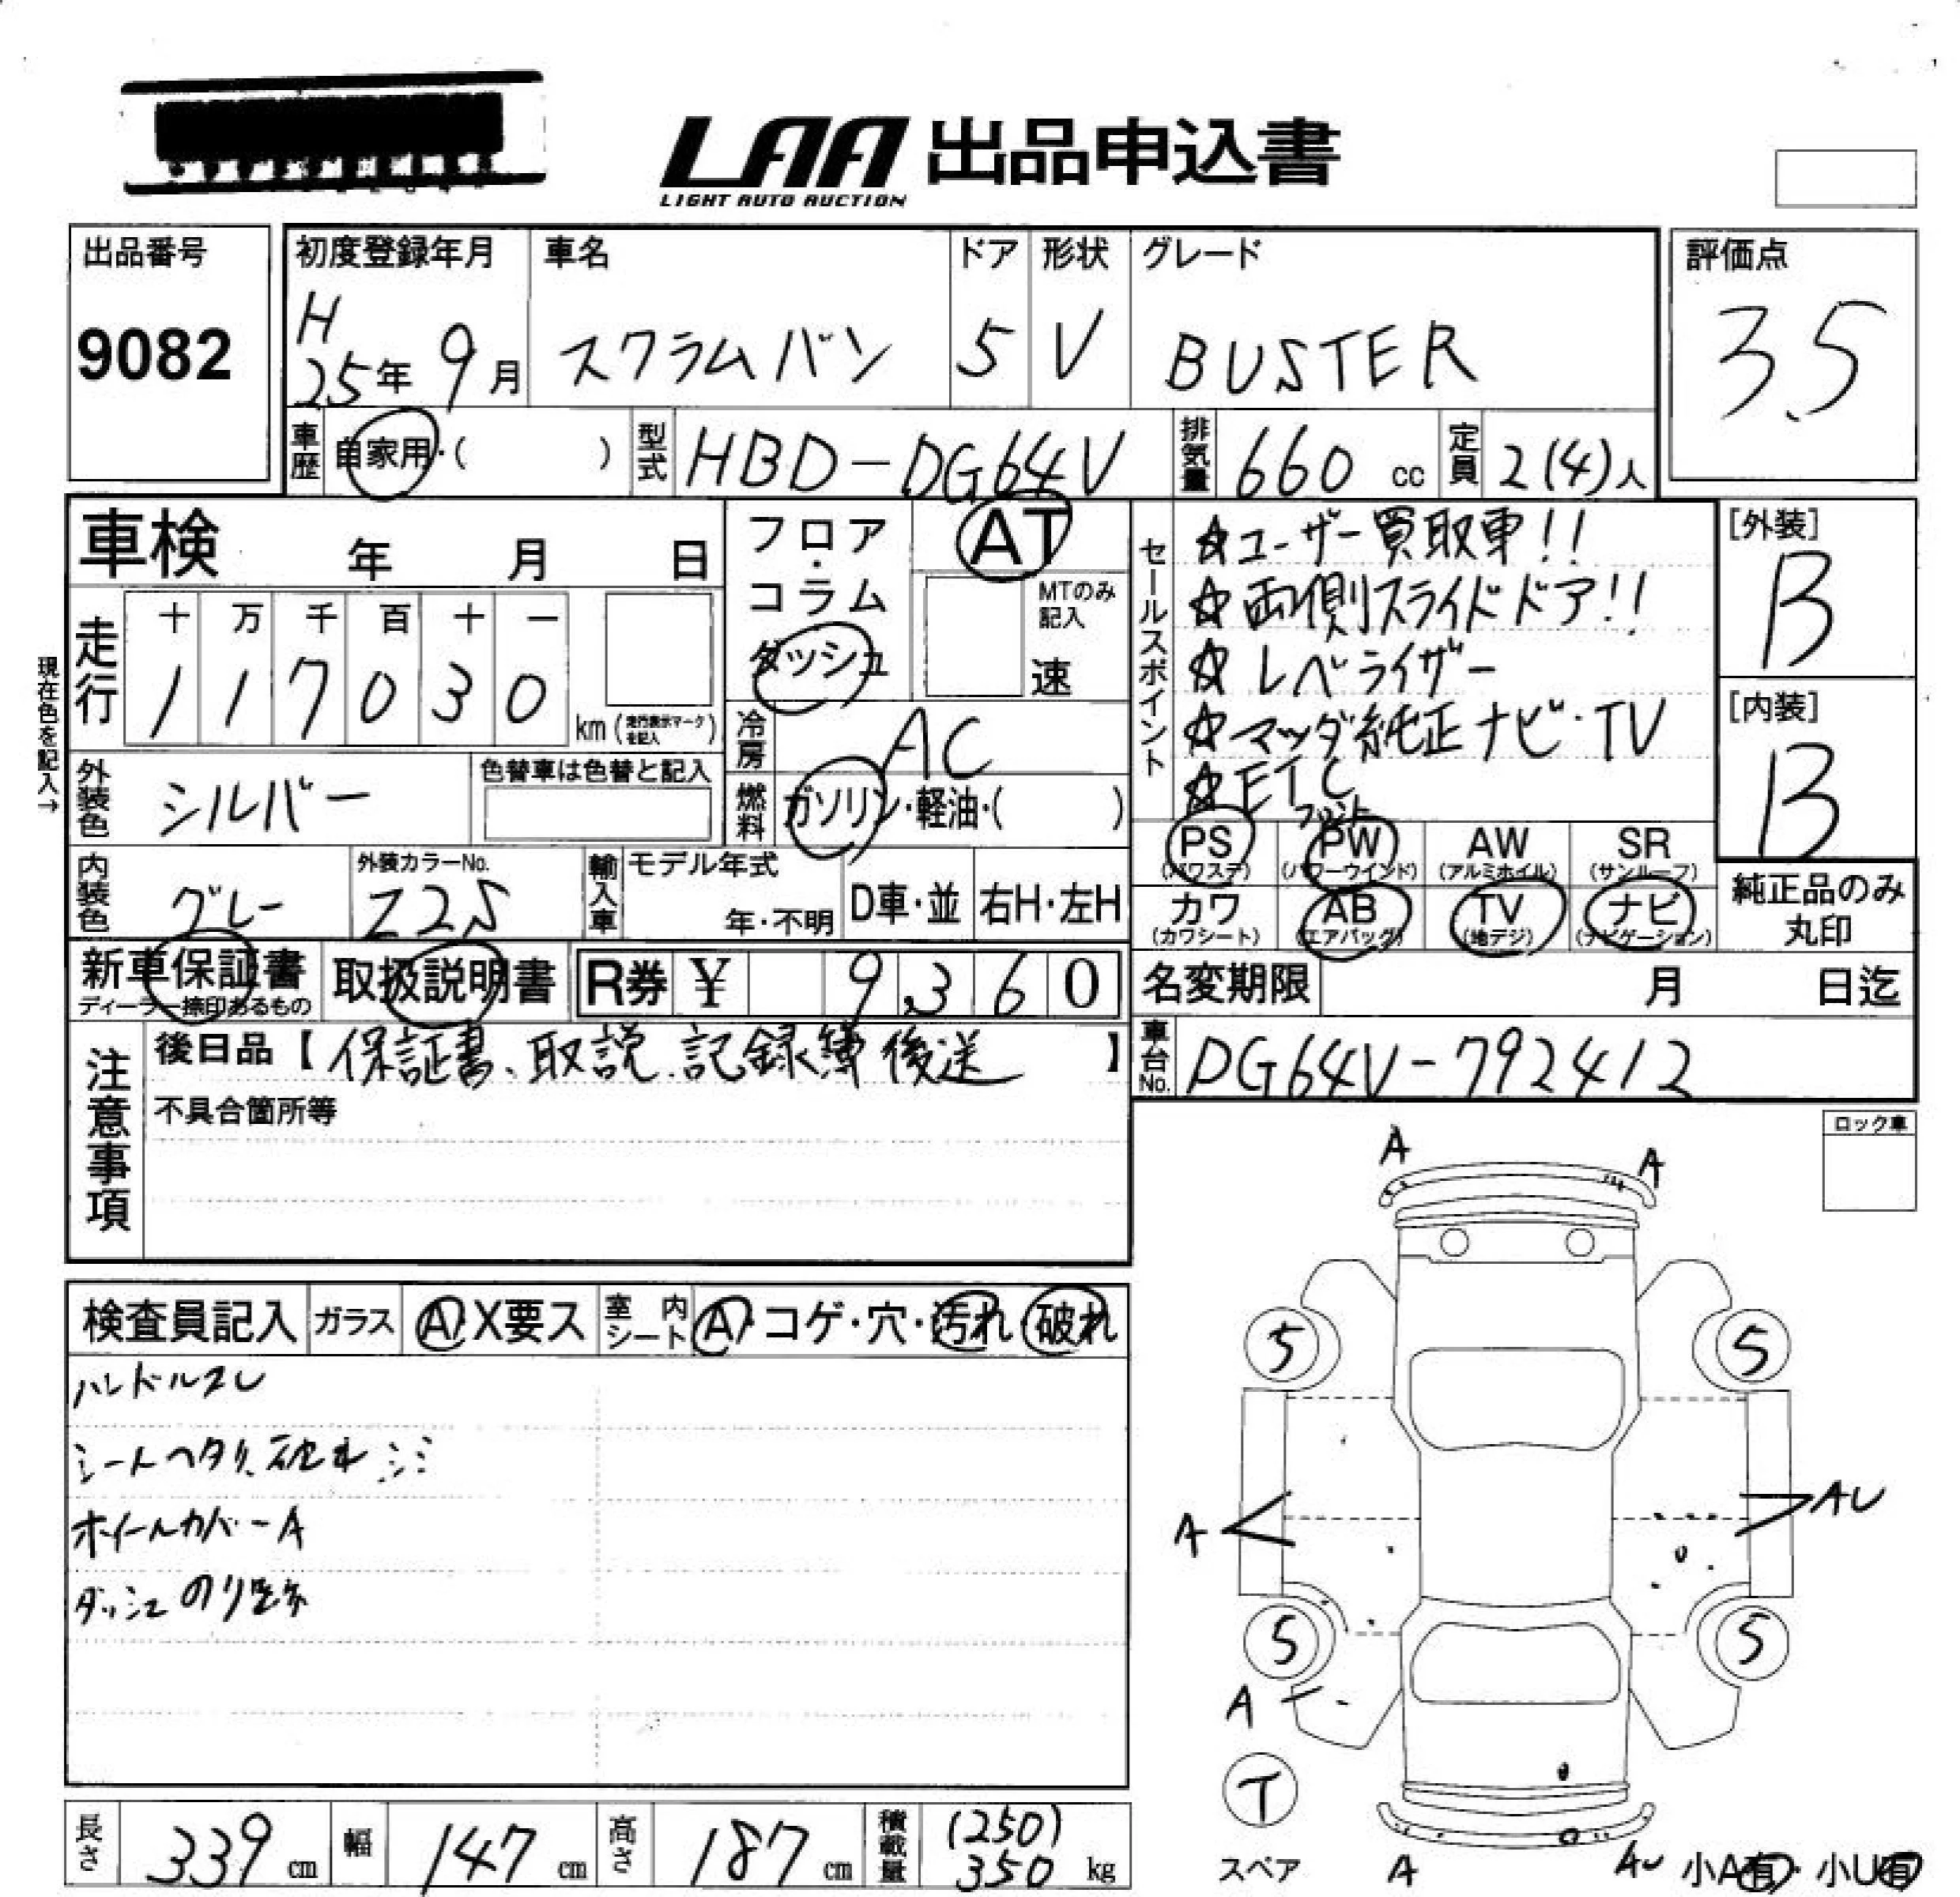 LAA 出品申込書
LIGHT AUTO AUCTION
出品番号
9082
初度登録年月
H
25年 9月
車名
スクラムバン
ドア
5
形状
V
グレード
BUSTER
評価点
3.5
車歴 自家用・( )
型式 HBD-DG64V
排気量 660 cc
定員 2(4)人
車検 年 月 日
走行
十 万 千 百 十 一
1 1 7 0 3 0
km (走行表示マークを記入)
現在色を記入→
外装色 シルバー
色替車は色替と記入
内装色 グレー
外装カラーNo.
Z2S
輸入車
モデル年式
年・不明
D車・並
右H・左H
フロア・コラム
ダッシュ
AT
MTのみ記入
速
冷房 AC
燃料 ガソリン・軽油・( )
セールスポイント
☆ユーザー買取車!!
☆両側スライドドア!!
☆レベライザー
☆マツダ純正ナビ・TV
☆ETC
フロント
[外装]
B
[内装]
B
PS
(パワステ)
PW
(パワーウインド)
AW
(アルミホイル)
SR
(サンルーフ)
カワ
(カワシート)
AB
(エアバッグ)
TV
(地デジ)
ナビ
(ナビゲーション)
純正品のみ
丸印
新車保証書
ディーラー捺印あるもの
取扱説明書
R券 ¥ 9,360
名変期限 月 日迄
車台No. DG64V-792412
注意事項
後日品【保証書、取説、記録簿後送】
不具合箇所等
ロック車
検査員記入
ガラス
A・X要ス
室内シート
A・コゲ・穴・汚れ・破れ
ハンドルスレ
シートヘタリ、破れ、シミ
ホイールカバーA
ダッシュのり跡
A
A
5
5
A
AU
5
5
A
T
スペア
A
AU
小A有・小U有
長さ 339 cm
幅 147 cm
高さ 187 cm
積載量 (250)
350 kg